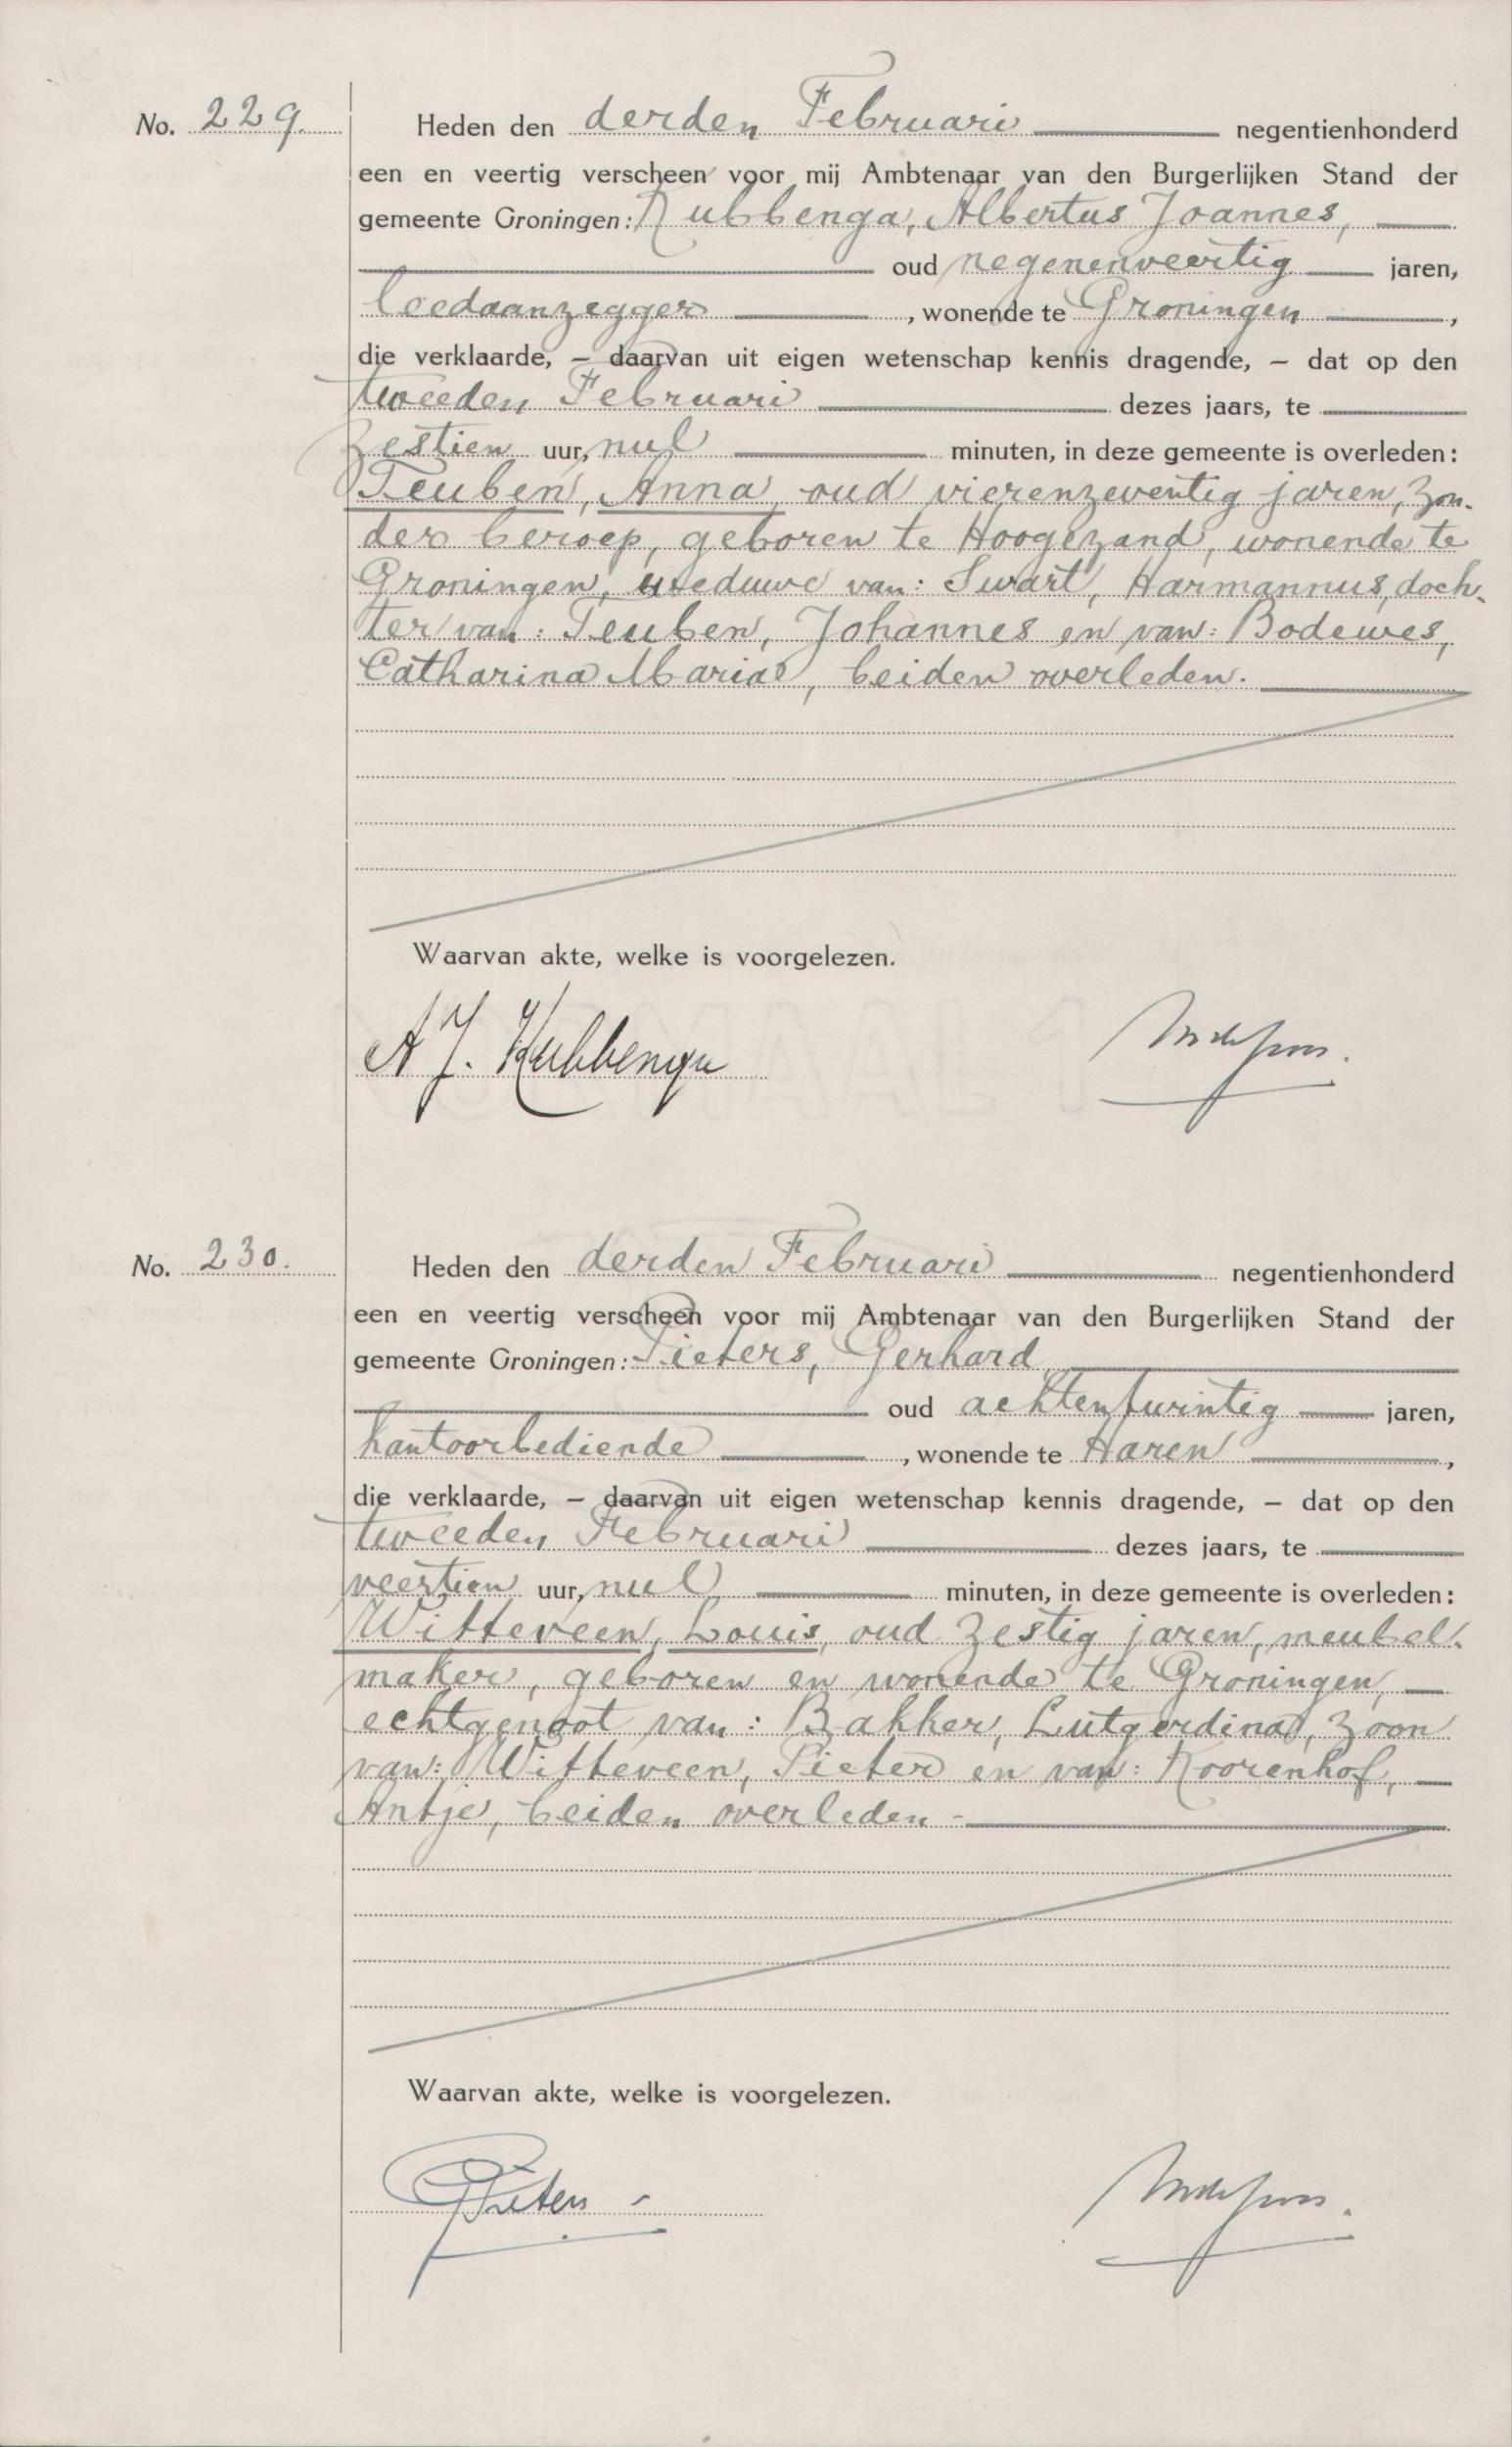 No. 229.
Heden den derden Februari negentienhonderd
een en veertig verscheen voor mij Ambtenaar van den Burgerlijken Stand der
gemeente Groningen: Kubbenga, Albertus Joannes,
oud negenenveertig jaren,
leedaanzegger, wonende te Groningen,
die verklaarde, – daarvan uit eigen wetenschap kennis dragende, – dat op den
tweeden Februari dezes jaars, te
zestien uur, nul minuten, in deze gemeente is overleden:
Teuben, Anna, oud vierenzeventig jaren, zon-
der beroep, geboren te Hoogezand, wonende te
Groningen, weduwe van: Swart, Harmannus, doch-
ter van: Teuben, Johannes en van: Bodewes,
Catharina Maria, beiden overleden.
Waarvan akte, welke is voorgelezen.
A J. Kubbenga
No. 230.
Heden den derden Februari negentienhonderd
een en veertig verscheen voor mij Ambtenaar van den Burgerlijken Stand der
gemeente Groningen: Pieters, Gerhard,
oud achtentwintig jaren,
kantoorbediende, wonende te Haren,
die verklaarde, – daarvan uit eigen wetenschap kennis dragende, – dat op den
tweeden Februari dezes jaars, te
veertien uur, nul minuten, in deze gemeente is overleden:
Witteveen, Louis, oud zestig jaren, meubel-
maker, geboren en wonende te Groningen,
echtgenoot van: Bakker, Lutgerdina, zoon
van: Witteveen, Pieter en van: Koorenhof,
Antje, beiden overleden.
Waarvan akte, welke is voorgelezen.
GPieters